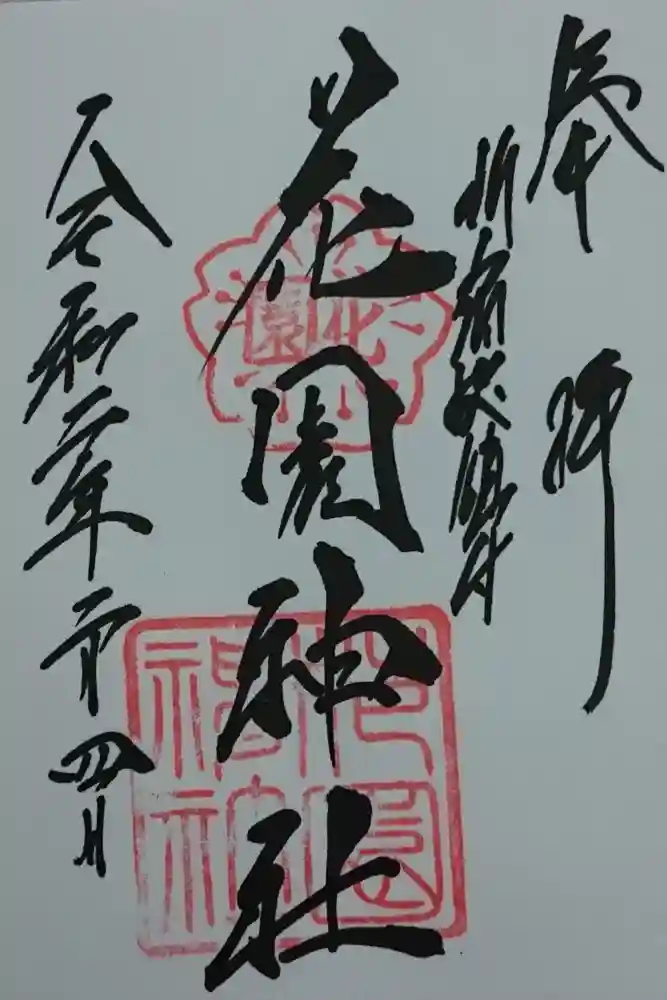 奉拝
新宿総鎮守
花園神社
令和二年二月四日
花園
花園神社